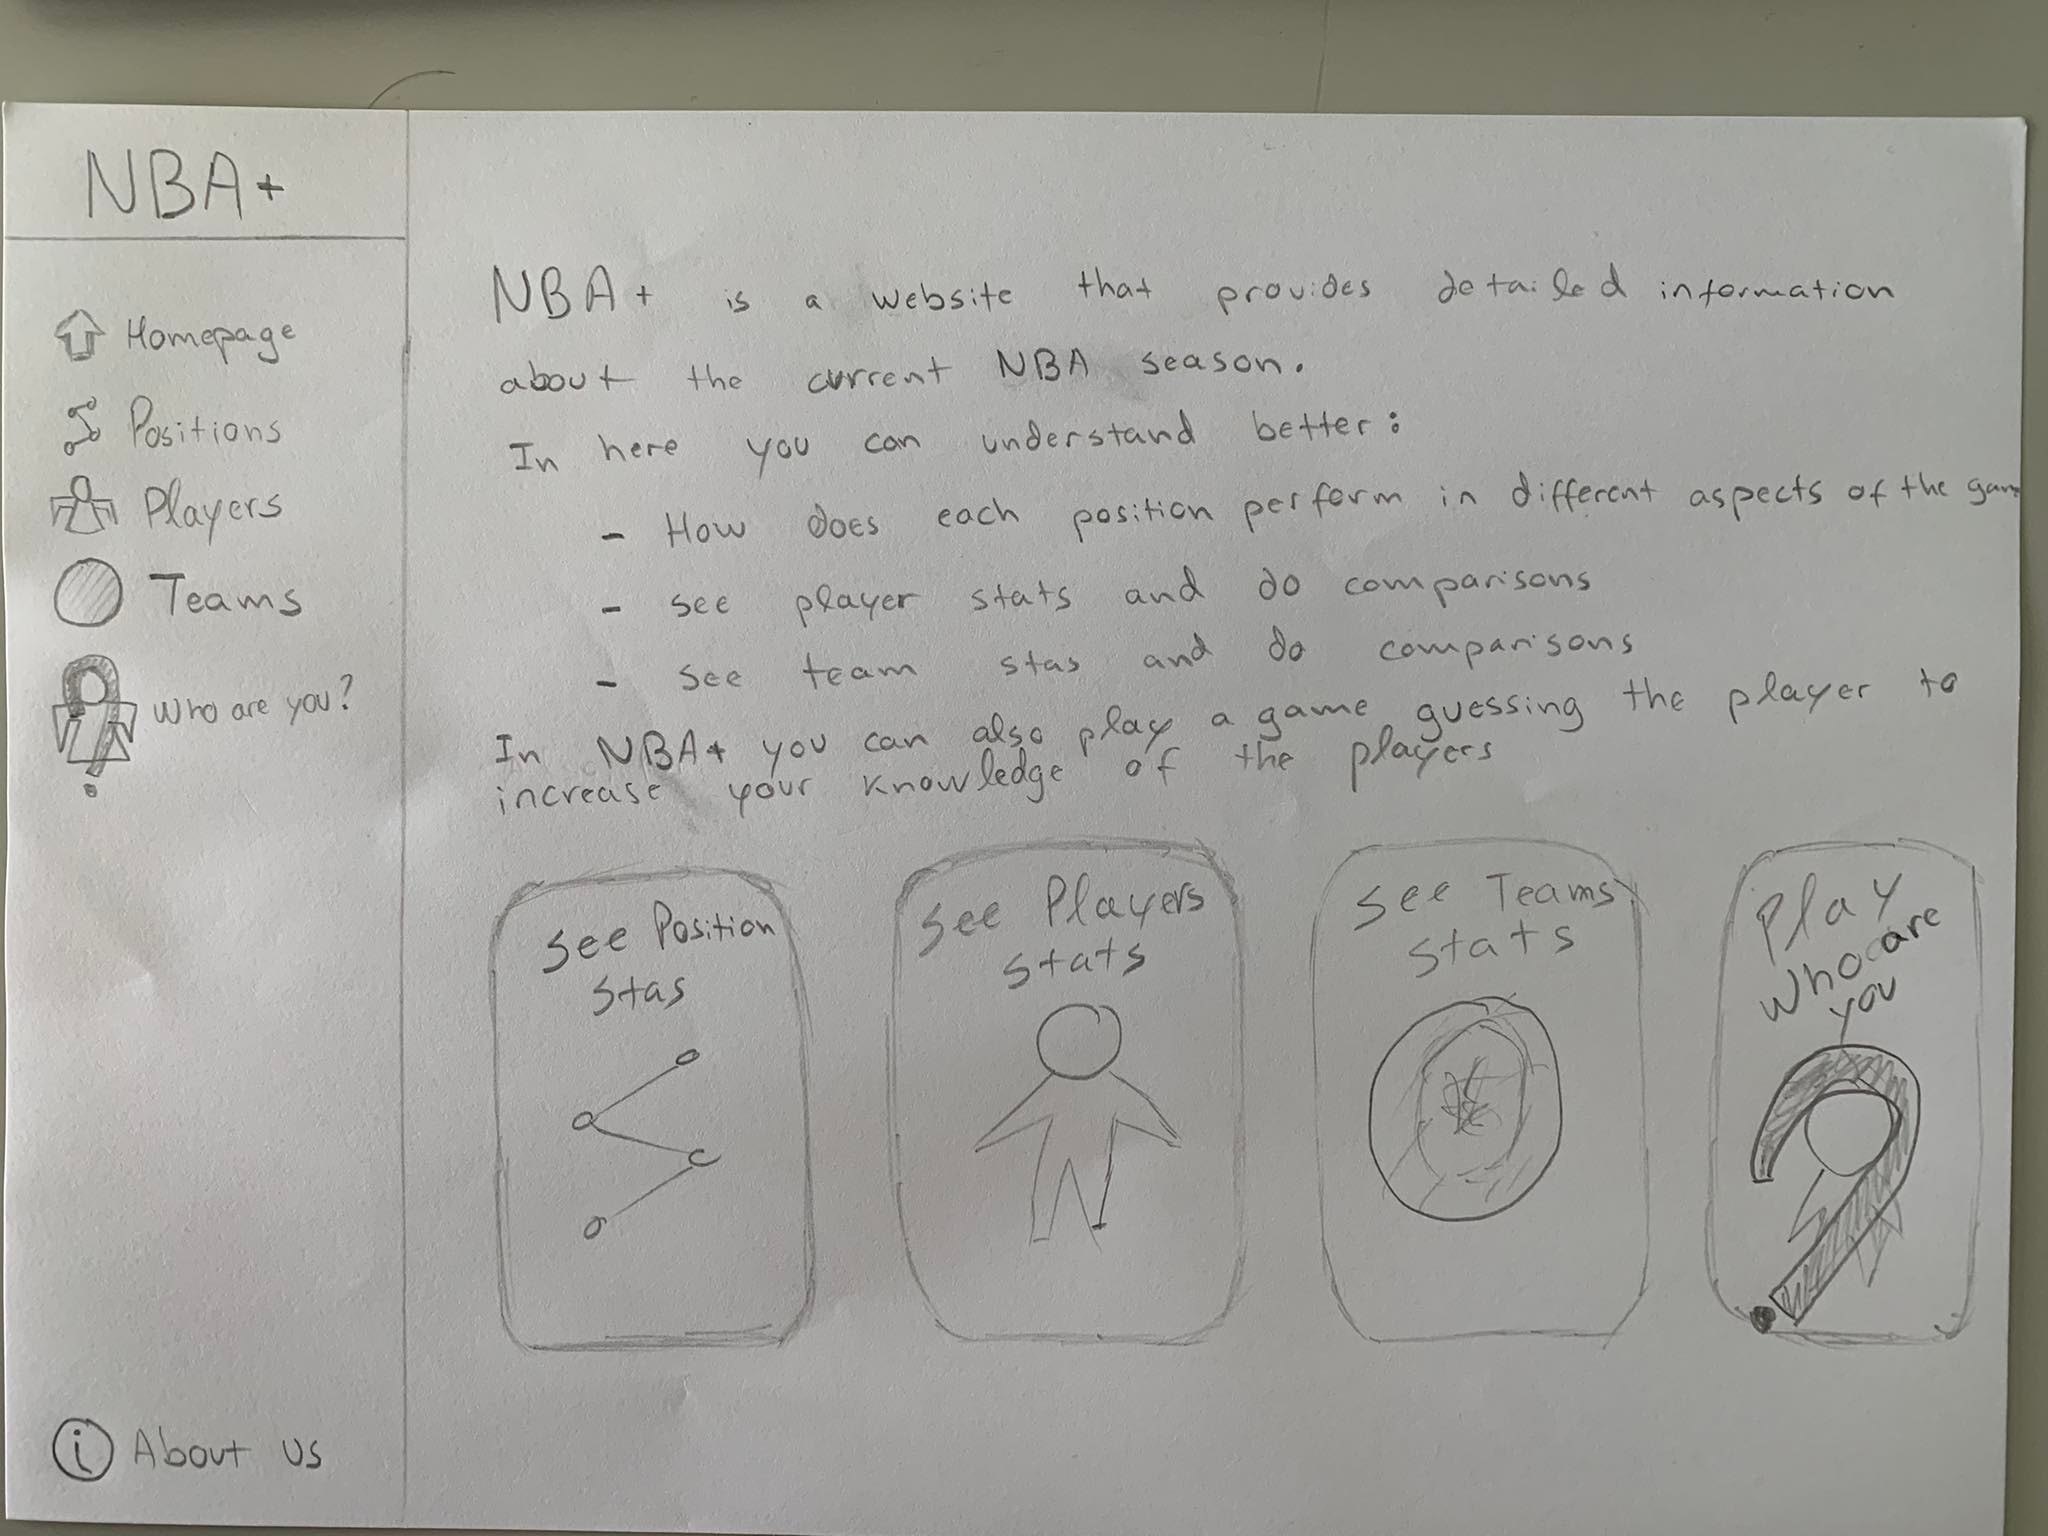 NBA+
Homepage
Positions
Players
Teams
Who are you?
i About us
NBA+ is a website that provides detailed information
about the current NBA season.
In here you can understand better:
- How does each position perform in different aspects of the game
- see player stats and do comparisons
- see team stas and do comparisons
In NBA+ you can also play a game guessing the player to
increase your knowledge of the players
See Position
stas
See Players
stats
See Teams
stats
Play
Who are
you